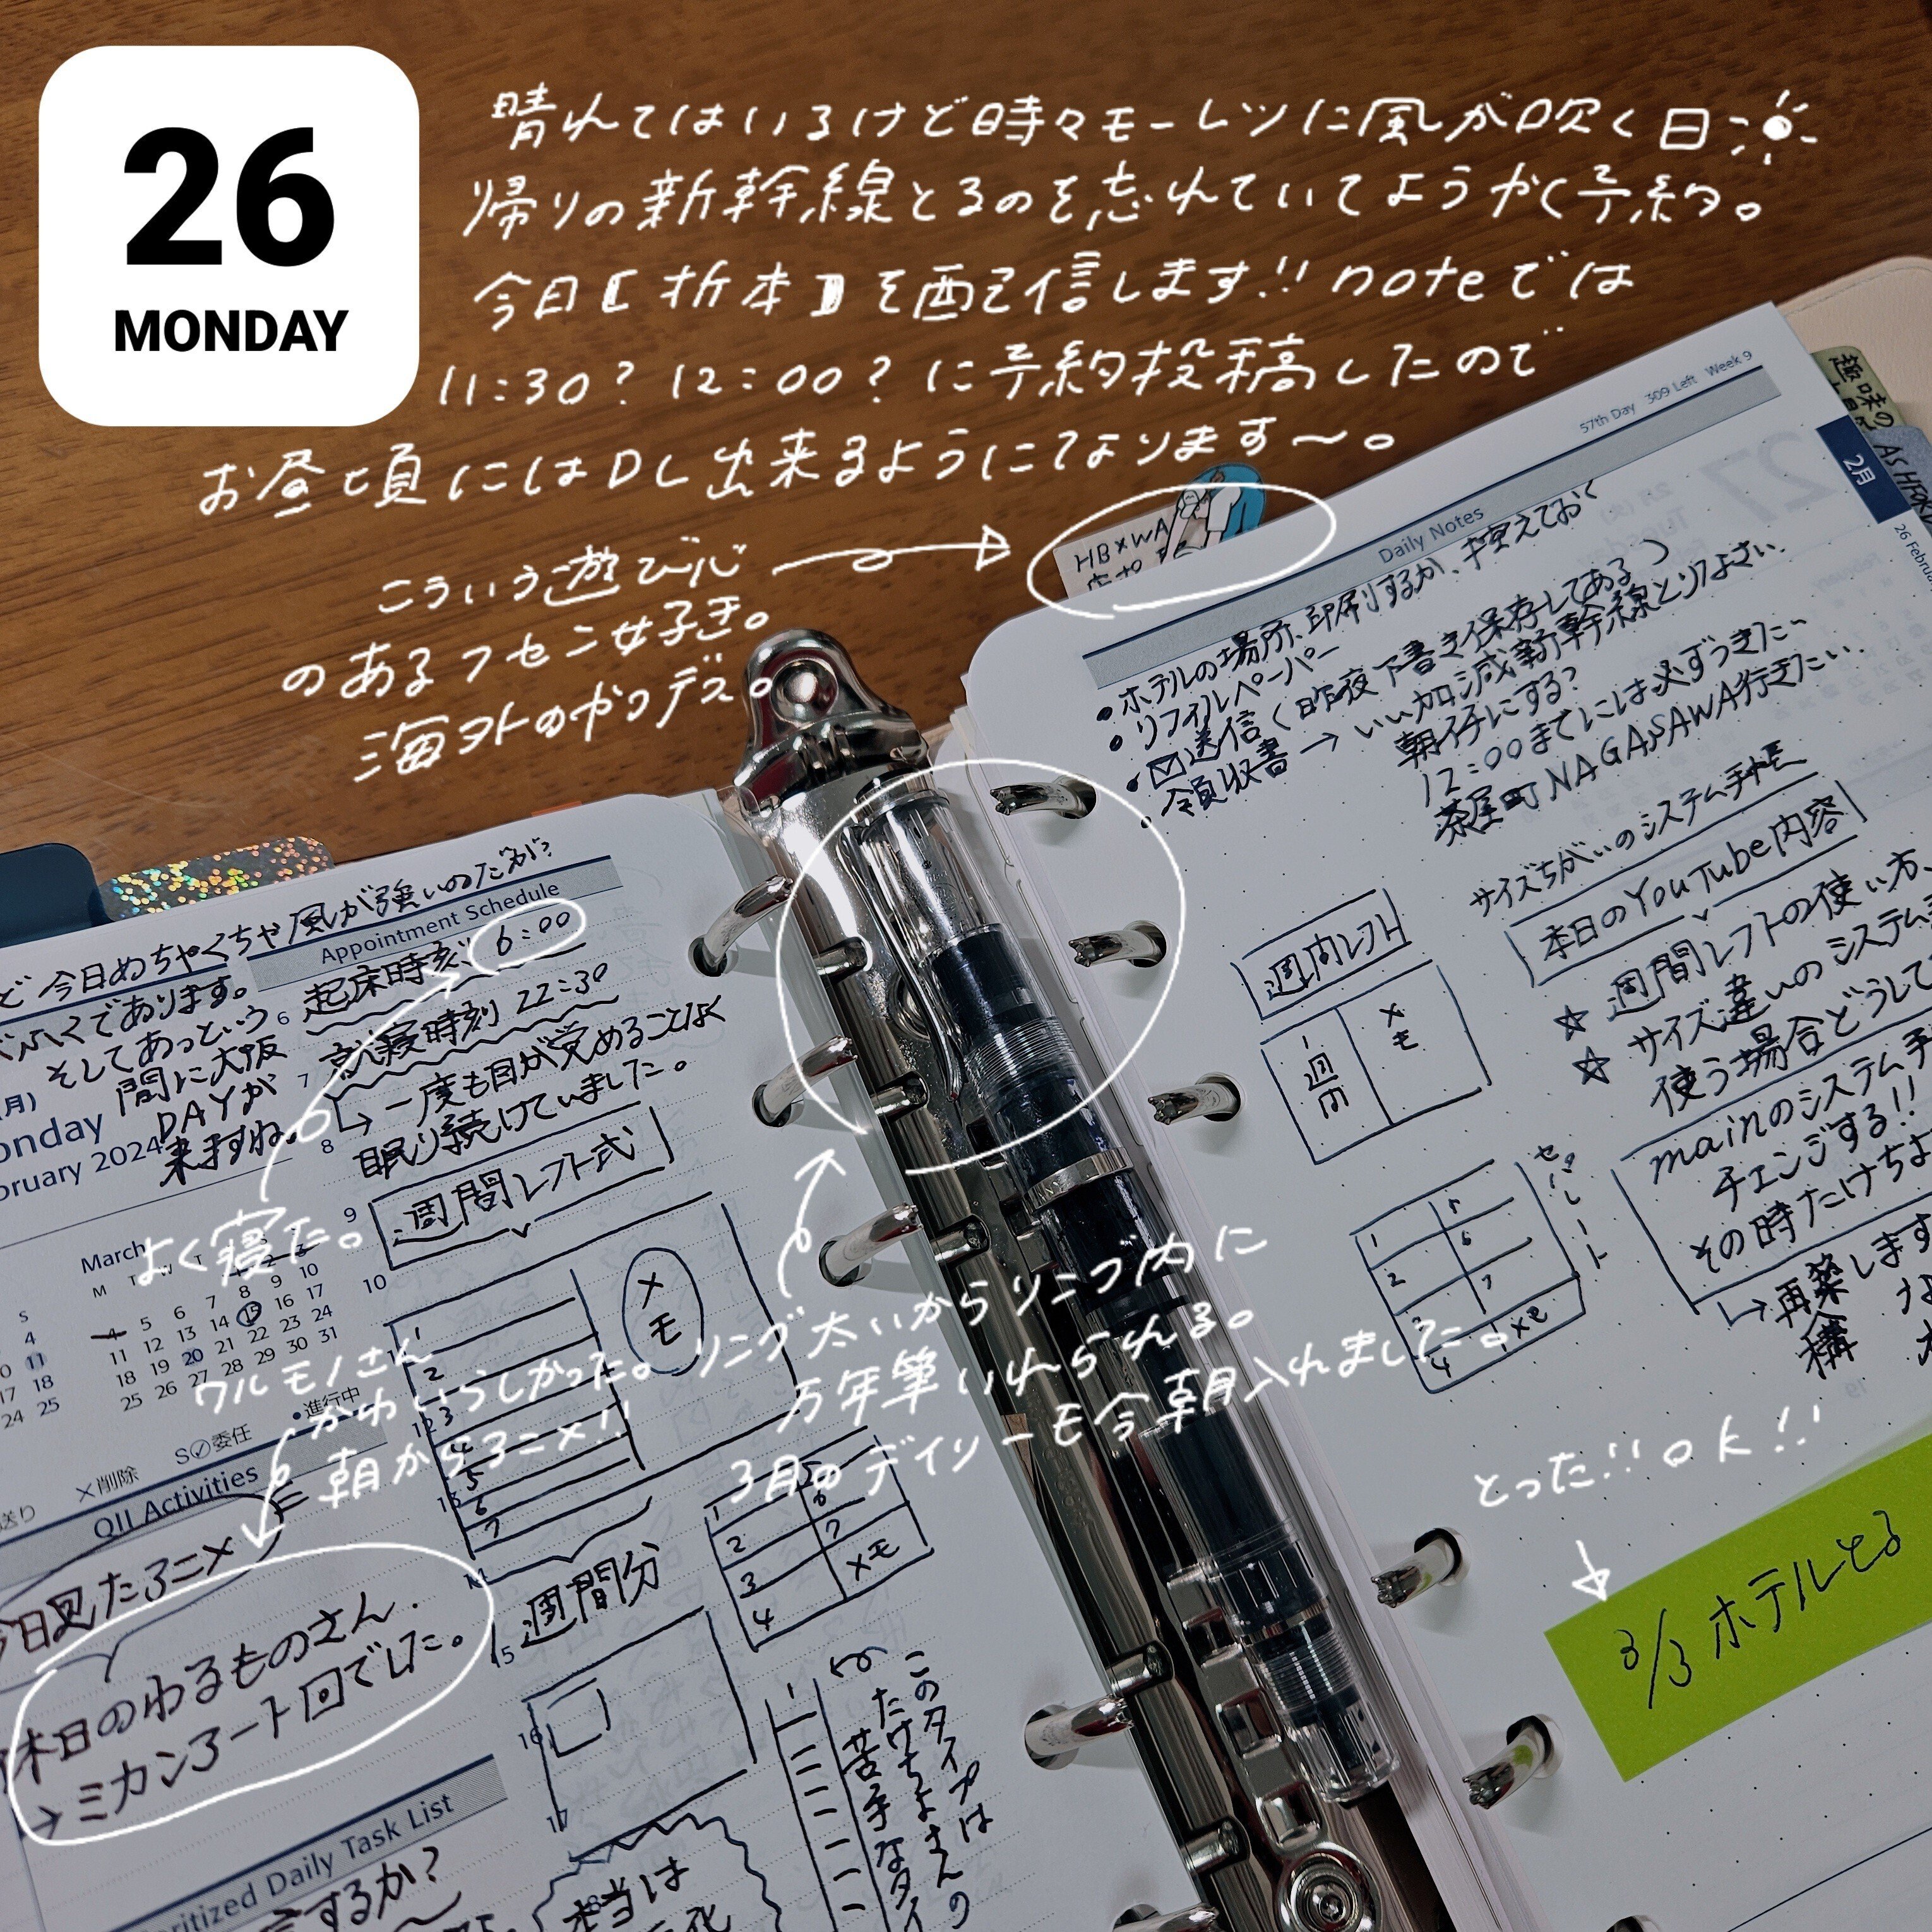 26
MONDAY
晴れてはいるけど時々モーレツに風が吹く日
帰りの新幹線とるのを忘れていてようやく予約。
今日【折本】を配信します!! noteでは
11:30? 12:00? に予約投稿したので
お昼頃にはDL出来るようになります〜。
こういう遊び心
のあるフセン好き。
海外のやつデス。
HB×WA
趣味の
2月
57th Day 309 Left Week 9
Daily Notes
・ホテルの場所、印刷するか、控えておく
・リフィルペーパー
・送信(昨夜下書き保存してある)
・領収書→いい加減新幹線とりなさい
朝イチにする?
12:00までには必ずつきたい
茶屋町NAGASAWA行きたい
サイズちがいのシステム手帳
本日のYouTube内容
☆週間レフトの使い方、
☆サイズ違いのシステム手
使う場合どうして
mainのシステム手
チェンジする!!
その時だけちょ
→再築します
構
週間レフト
週間
メモ
セパレート
1
2
3
4
5
6
7
メモ
とった!! OK!!
3/3 ホテルとる
ど今日めちゃくちゃ風が強いのだが?
であります。
そしてあっという
間に大阪
DAYが
来ますね。
(月)
onday
bruary 2024
Appointment Schedule
起床時刻 6:00
就寝時刻 22:30
→一度も目が覚めることなく
眠り続けていました。
よく寝た。
週間レフト式
メモ
1
2
3
4
5
6
7
週間分
1
2
3
4
6
7
メモ
March
M T W T
5 6 7 8 9 10
11 12 13 14 15 16 17
18 19 20 21 22 23 24
25 26 27 28 29 30 31
ワルモノさん
かわいらしかった。
朝からアニメ!!
リング太いからリング内に
万年筆いれられる。
3月のデイリーも今朝入れました。
×削除
S✓委任
•進行中
QII Activities
今日見たアニメ
休日のわるものさん.
→ミカンアート回でした。
oritized Daily Task List
するか?
このタイプは
だけちょまんの
苦手なタイ
本当は